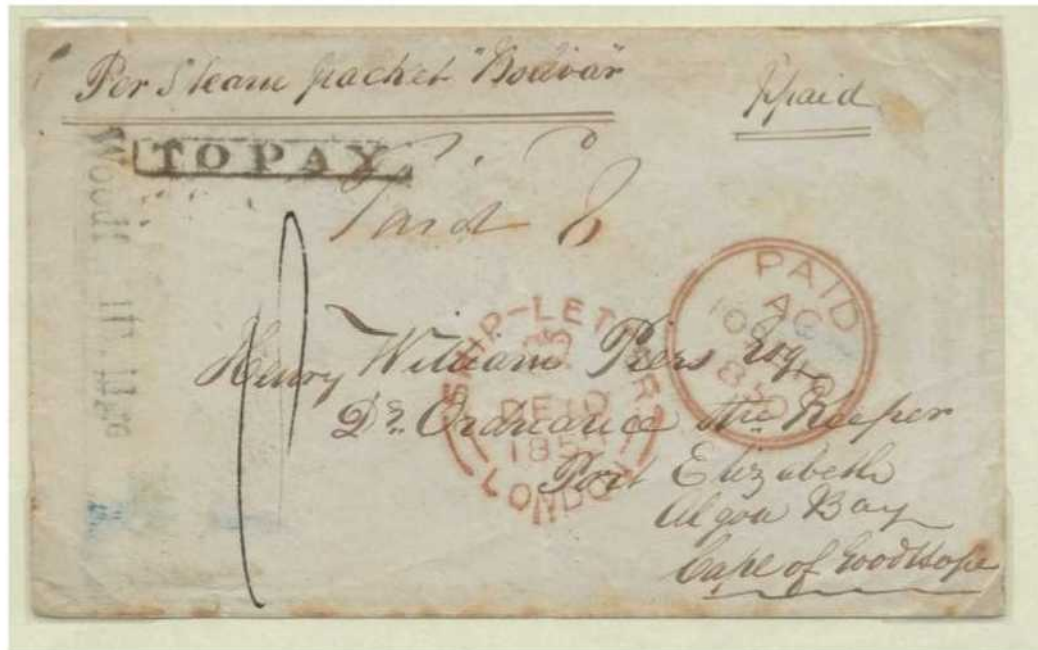 Per Steam packet "Bolivar"
Ppaid
TO PAY
Paid 8
PAID
AG
1850
SHIP-LETTER
DE 10
185
LONDON
Henry William Piers Esq
Dy. Ordnance Keeper
Port Elizabeth
Algoa Bay
Cape of Good Hope